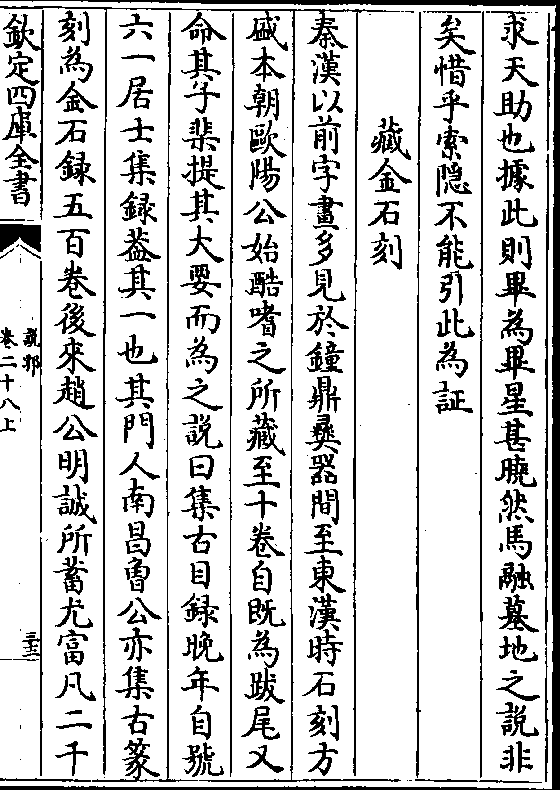 求天助也據此則畢為畢星甚曉然馬融墓地之說非
矣惜乎索隠不能引此為証
藏金石刻
秦漢以前字畫多見於鐘鼎彞器間至東漢時石刻方
盛本朝歐陽公始酷嗜之所藏至十卷自既為跋尾又
命其子棐提其大要而為之說曰集古目録晩年自號
六一居士集録葢其一也其門人南昌魯公亦集古篆
刻為金石録五百卷後來趙公明誠所蓄尤富凡二千
欽定四庫全書
說郛
卷二十八上
三十三